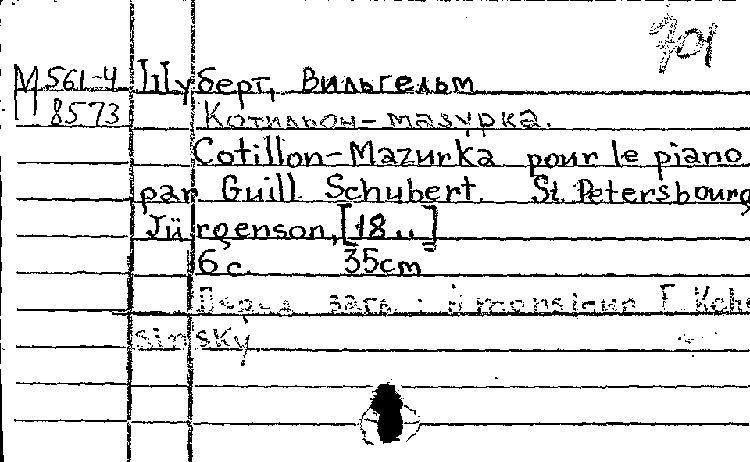 701
М 561-4 Шуберт, Вильгельм
8573 Котильон-мазурка.
Cotillon-Mazurka pour le piano
par Guill Schubert. St. Petersbourg
Jürgenson, [18..]
6 с. 35cm
Перед загл.: à monsieur F. Kche
sinsky